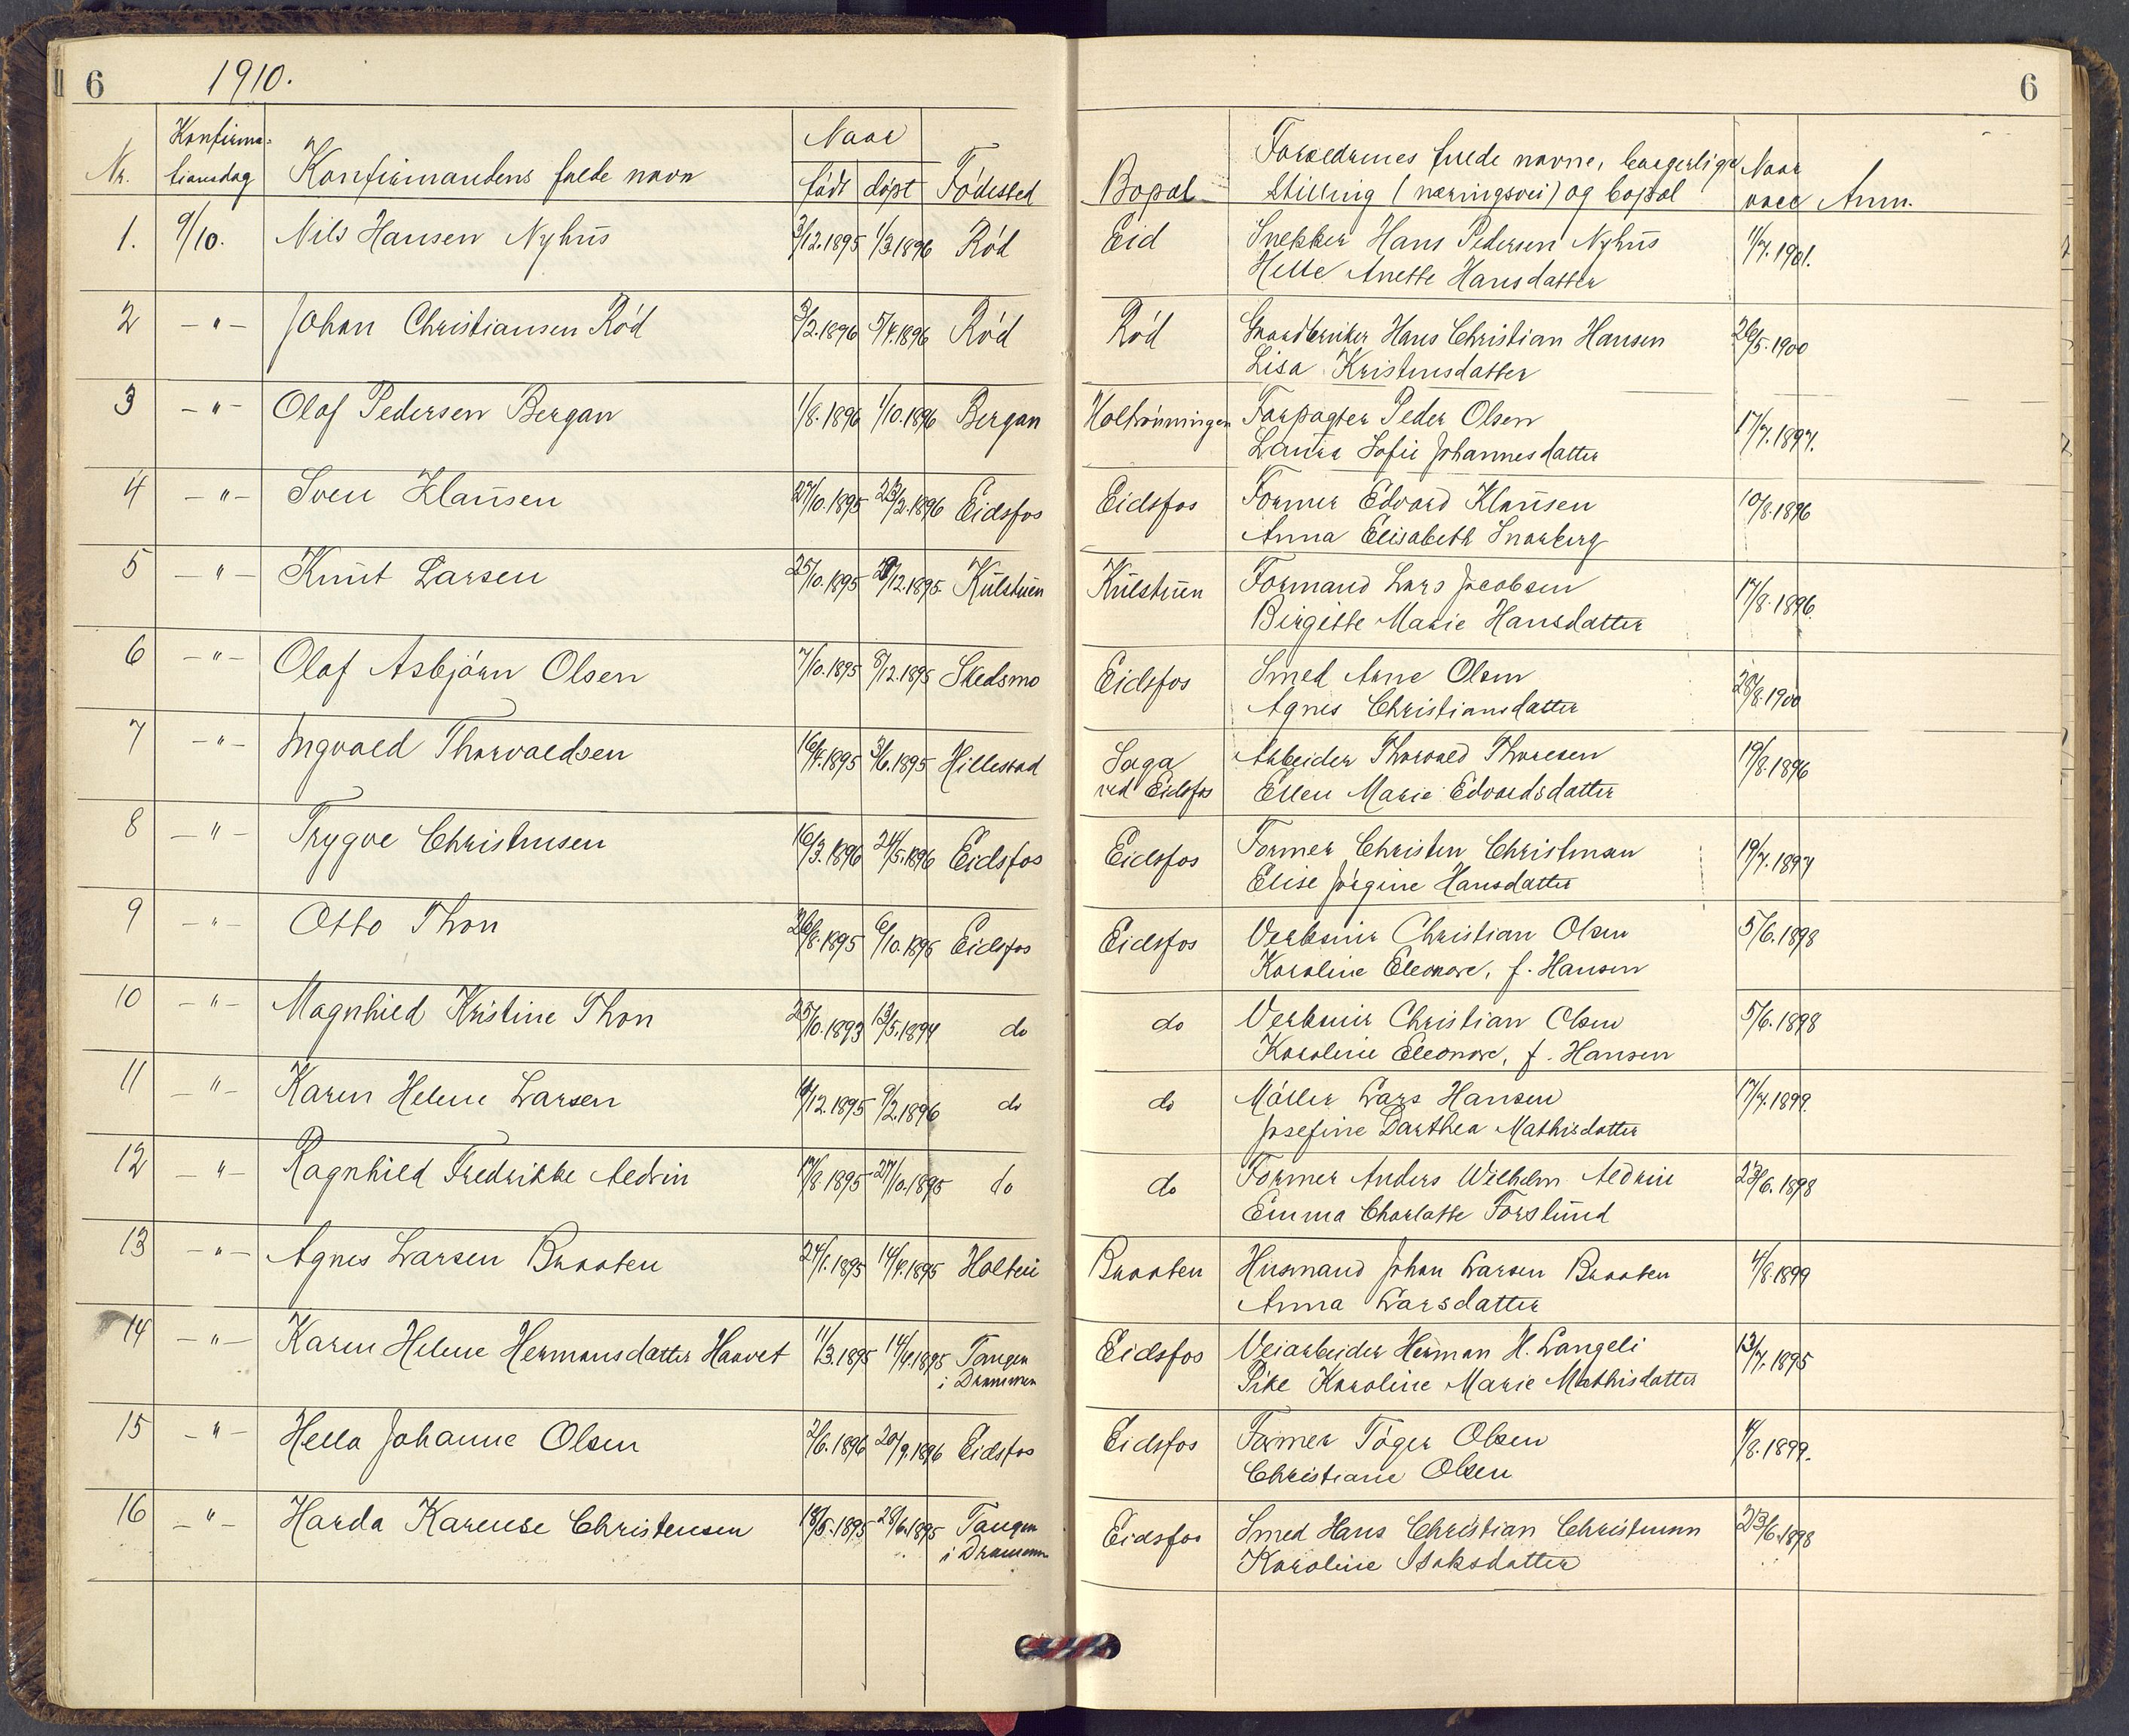 6 1910. 6
Nr. Konfirma-tionsdag Konfirmandens fulde navn Naar født døpt Fødested Bopæl Forældrenes fulde navne, borgerlige Naar
stilling (næringsvei) og bopæl vacc Anm.
1. 9/10. Nils Hansen Nyhus 3/12.1895 1/3.1896 Rød Eid Snekker Hans Pedersen Nyhus 11/7.1901.
Helle Anette Hansdatter
2 -"- Johan Christiansen Rød 3/2.1896 5/4.1896 Rød Rød Gaardbruker Hans Christian Hansen 26/5.1900
Lisa Kristensdatter
3 -"- Olaf Pedersen Bergan 1/8.1896 1/10.1896 Bergan Holtrønningen Forpagter Peder Olsen 17/7.1897.
Laura Sofie Johannesdatter
4 -"- Sven Klausen 27/10.1895 23/2.1896 Eidsfos Eidsfos Former Edvard Klausen 10/8.1896
Anna Elisabeth Snarberg
5 -"- Knut Larsen 25/10.1895 /12.1895. Kulstuen Kulstuen Formand Lars Jacobsen 17/8.1896.
Birgitte Marie Hansdatter
6 -"- Olaf Asbjørn Olsen 7/10.1895 8/12.1895 Skedsmo Eidsfos Smed Arne Olsen 28/8.1900
Agnes Christiansdatter
7 -"- Ingvald Thorvaldsen 16/4.1895 3/6.1895 Hillestad Saga Arbeider Thorvald Thoresen 19/8.1896
ved Eidsfos Ellen Marie Edvardsdatter
8 -"- Trygve Christensen 16/3.1896 24/5.1896 Eidsfos Eidsfos Former Christen Christensen 19/7.1897
Elise Jørgine Hansdatter
9 -"- Otto Thon 26/8.1895 6/10.1895 Eidsfos Eidsfos Verkseier Christian Olsen 5/6.1898
Karoline Eleonore, f. Hansen
10 -"- Magnhild Kristine Thon 25/10.1893 13/5.1894 do do Verkseier Christian Olsen 5/6.1898
Karoline Eleonore, f. Hansen
11 "- Karen Helene Larsen /12.1895 9/2.1896 do do Møller Lars Hansen 17/7.1899.
Josefine Darthea Mathisdatter
12 -"- Ragnhild Fredrikke Aldrin 17/8.1895 27/10.1895 do do Former Anders Wilhelm Aldrin 23/6.1898
Emma Charlotte Forslund
13 -"- Agnes Larsen Braaten 24/1.1895 14/4.1895 Holtun Braaten Husmand Johan Larsen Braaten 4/8.1899
Anna Larsdatter
14 -"- Karen Helene Hermansdatter Haavet 11/3.1895 14/4.1895 Tangen Eidsfos Veiarbeider Herman H. Langeli 13/7.1895
i Drammen Pike Karoline Marie Mathisdatter
15 -"- Hella Johanne Olsen 2/6.1896 20/9.1896 Eidsfos Eidsfos Former Tøger Olsen /8.1899.
Christiane Olsen
16 -"- Harda Karense Christensen 18/5.1895 28/6.1895 Tangen Eidsfos Smed Hans Christian Christensen 23/6.1898
i Drammen Karoline Isaksdatter